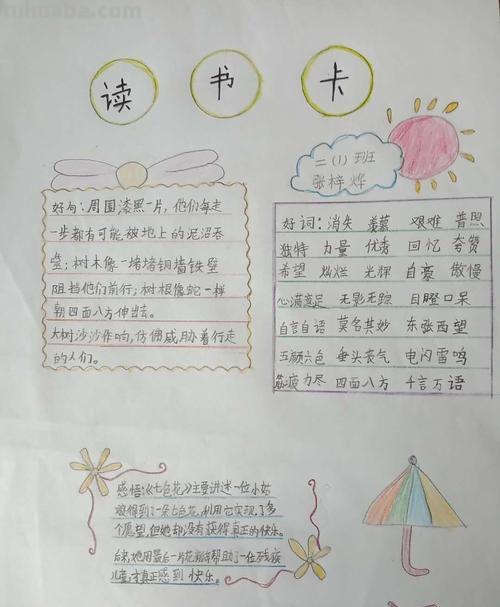 tuhuaba.com
读 书 卡
二(1)班
张梓烨
好句:周围漆黑一片,他们每走
一步都有可能被地上的泥沼吞
噬;树木像一堵堵铜墙铁壁
阻挡他们前行;树根像蛇一样
朝四面八方伸出去。
大树沙沙作响,仿佛威胁着行走
的人们。
好词:消失 羡慕 艰难 普照
独特 力量 优秀 回忆 夸赞
希望 灿烂 光辉 自豪 傲慢
心满意足 无影无踪 目瞪口呆
自言自语 莫名其妙 东张西望
五颜六色 垂头丧气 电闪雷鸣
筋疲力尽 四面八方 千言万语
感悟:《七色花》主要讲述一位小姑
娘得到了一朵七色花,利用它实现了多
个愿望,但她却没有获得真正的快乐。
后来,她用最后一片花瓣帮助了一位残疾
儿童,才真正感到快乐。